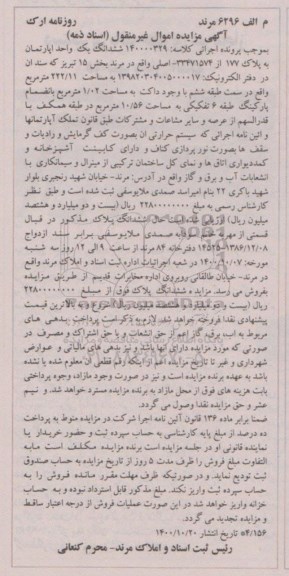 م الف ۶۲۹۶ مرند روزنامه ارک
آگهی مزایده اموال غیرمنقول (اسناد ذمه)
بموجب پرونده اجرائی کلاسه: ۱۴۰۰۰۰۳۲۹ ششدانگ یک واحد اپارتمان
به پلاک ۱۷۷ از ۳۳۴۷۱۵۷۴ اصلی واقع در مرند بخش ۱۵ تبریز که سند آن
در دفتر الکترونیک: ۱۳۹۸۲۰۳۰۴۰۰۵۰۰۰۰۱۷ به مساحت ۲۲۲/۱۱ مترمربع
واقع در سمت طبقه ششم با وجود داکت به مساحت ۱/۰۲ مترمربع بانضمام
پارکینگ طبقه ۶ تفکیکی به مساحت ۱۰/۵۶ مترمربع در طبقه همکف با
قدرالسهم از عرصه و سایر مشاعات و مشترکات طبق قانون تملک آپارتمانها
و ائین نامه اجرائی که سیستم حرارتی ان بصورت کف گرمایش و رادیات و
سقف ها بصورت نور پردازی کناف و دارای کابینت آشپزخانه و
کمددیواری اتاق ها و نمای کل ساختمان ترکیبی از مینرال و سیمانکاری با
انشعابات آب و برق و گاز واقع در آدرس: مرند- خیابان شهید رنجبری بلوار
شهید باکری ۲۲ بنام امیراسد صمدی ملایوسفی ثبت شده است و طبق نظر
کارشناس رسمی به مبلغ ۲۲۸۰۰۰۰۰۰۰۰ ریال (بیست و دو میلیارد و هشتصد
میلیون ریال) ارزیابی شده است حال ششدانگ پلاک مذکور در قبال
قسمتی از مهریه خانم صمدی ملایوسفی برابر سند ازدواج
۱۴۵۲۵-۱۳۸۶/۱۲/۰۸ دفترخانه ۸۴ مرند از ساعت ۹ الی ۱۲ روز سه شنبه
مورخه: ۱۴۰۰/۱۰/۰۷ در شعبه اجرائیات اداره ثبت اسناد و املاک مرند واقع
در مرند- خیابان طالقانی روبروی اداره مخابرات قدیم از طریق مزایده
بفروش می رسد. مزایده ششدانگ پلاک فوق از مبلغ ۲۲۸۰۰۰۰۰۰۰۰
ریال (بیست و دو میلیارد و هشتصد میلیون ریال) شروع و به بالاترین قیمت
پیشنهادی نقدا فروخته خواهد شد. لازم به ذکر است پرداخت بدهی های
مربوط به اب، برق، گاز اعم از حق انشعاب و یا حق اشتراک و مصرف در
صورتی که مورد مزایده دارای آنها باشد و نیز بدهی های مالیاتی و عوارض
شهرداری و غیر تا تاریخ مزایده اعم از اینکه رقم قطعی آن معلوم شده یا نشده
باشد به عهده برنده مزایده است و نیز در صورت وجود مازاد، وجوه پرداختی
بابت هزینه های فوق از محل مازاد به برنده مزایده مسترد خواهد شد. و نیم
عشر و حق مزایده نقدا وصول می گردد.
ضمنا برابر ماده ۱۳۶ قانون آئین نامه اجرا شرکت در مزایده منوط به پرداخت
ده درصد از مبلغ پایه کارشناسی به حساب سپرده ثبت و حضور خریدار یا
نماینده قانونی او در جلسه مزایده است برنده مزایده مکلف است مابه
التفاوت مبلغ فروش را ظرف مدت ۵ روز از تاریخ مزایده به حساب صندوق
ثبت تودیع نماید. و در صورتیکه ظرف مهلت مقرر مانده فروش را به
حساب سپرده ثبت واریز نکند. مبلغ مذکور قابل استرداد نبوده و به حساب
خزانه واریز خواهد شد در این صورت عملیات فروش از درجه اعتبار ساقط
و مزایده تجدید می گردد.
۴/۱۵۶* تاریخ انتشار ۱۴۰۰/۱۰/۲۰
رئیس ثبت اسناد و املاک مرند- محرم کنعانی